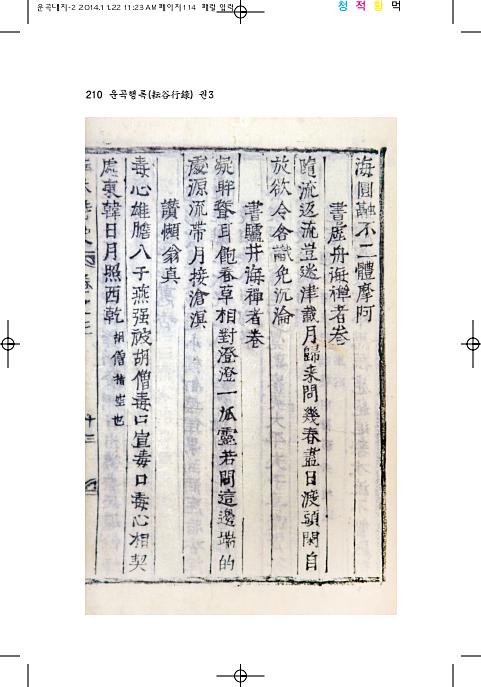 운곡내지-2 2014.11.22 11:23 AM 페이지114
청 적 황 먹
210 운곡행록(耘谷行錄) 권3
海圓融不二體摩阿
書虛舟海禪者卷
隨流返流豈迷津載月歸来問幾春盡日渡頭閑自
放欲令含識免沉淪
書驢井海禪者卷
凝眸聳耳飽春草相對澄澄一泒靈若問這邊端的
處源流帯月接滄溟
讚懶翁真
毒心雄膽入于燕强被胡僧毒口宣毒口毒心相契
處東韓日月照西乾 胡僧指空也